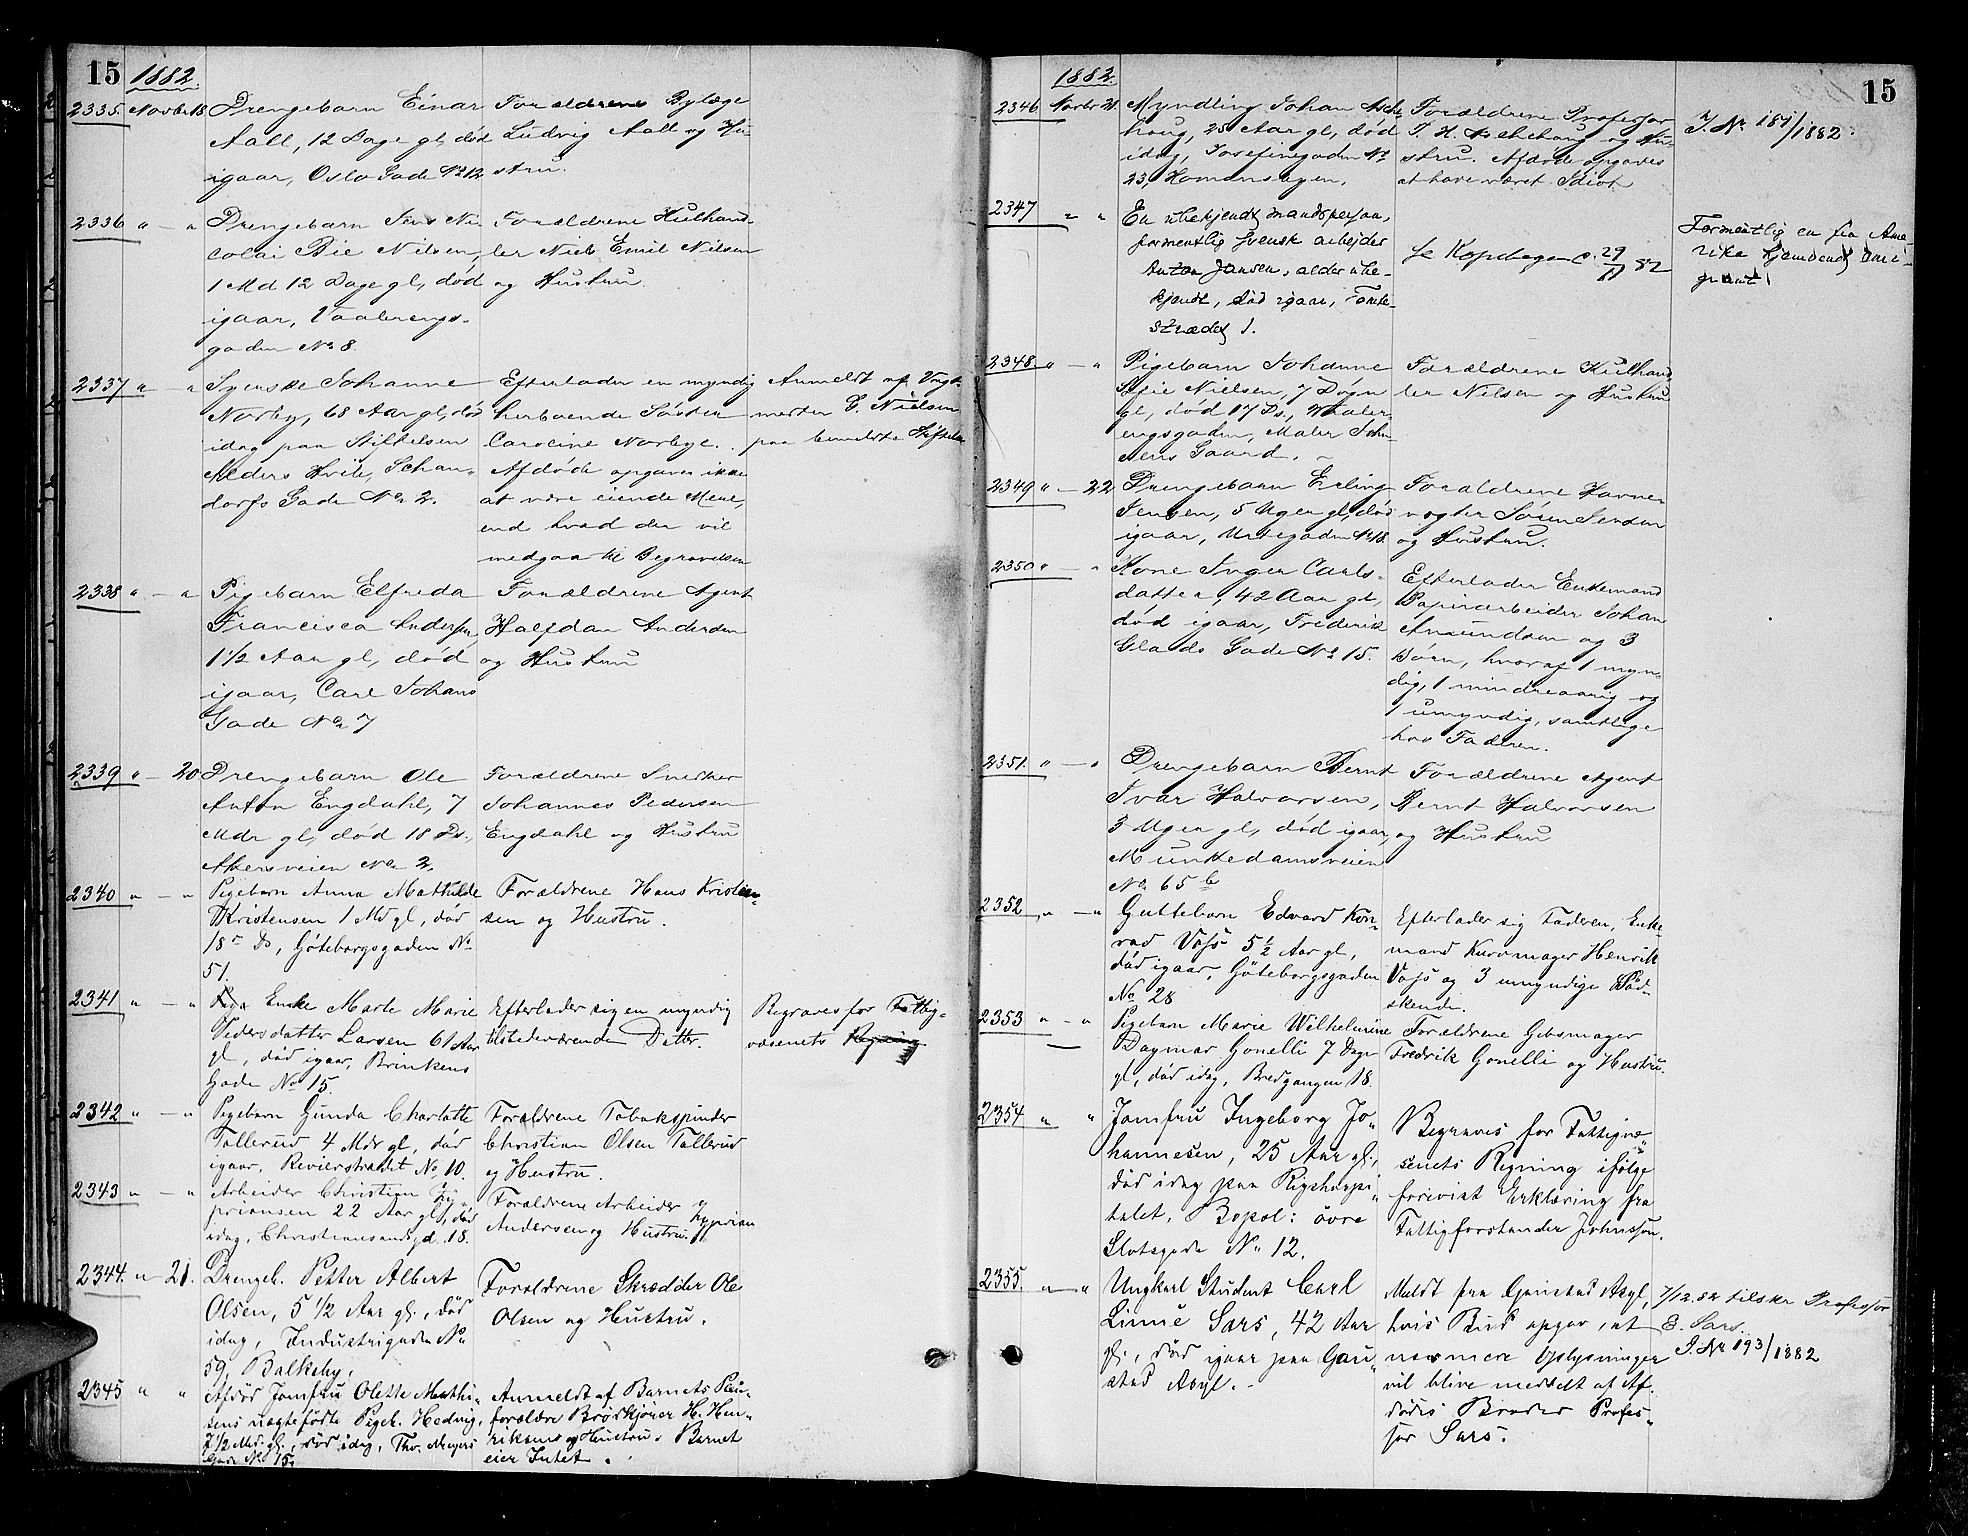 15 1882.
2335. Novbr 18 Drengebarn Einar
Aall, 12 Dage gl, død
igaar, Oslo Gade No 12
Forældrene Bylæge
Ludvig Aall og Hu-
stru.
2336 " — " Drengebarn Jens Ni-
colai Bie Nilsen,
1 Md 12 Dage gl, død
igaar, Vaalerengs-
gaden No 8.
Forældrene Kulhand-
ler Niels Emil Nilsen
og Hustru
2337 " — " Syerske Johanne
Norby, 68 Aar gl, død
idag paa Stiftelsen
Alders Hvile, Schan-
dorfs Gade No 2.
Efterlader en myndig
herboende Søster
Caroline Norbye.
Afdøde opgives ikke
at være eiende Mere,
end hvad der vil
medgaa til Begravelsen
Anmeldt af Vagt-
mester C. Nielsen
paa bemeldte Stiftelse
2338 " — " Pigebarn Elfrida
Francisca Andersen,
1 1/2 Aar gl, død
igaar, Carl Johans
Gade No 7
Forældrene Agent
Halfdan Andersen
og Hustru
2339 " — 20 Drengebarn Ole
Anton Engdahl, 7
Mdr gl, død 18 Ds,
Akersveien No 2.
Forældrene Snedker
Johannes Pedersen
Engdahl og Hustru
2340 " — " Pigebarn Anna Mathilde
Kristensen 1 Md gl, død
18de Ds, Göteborgsgaden No
51.
Forældrene Hans Kristen-
sen og Hustru.
2341 " — " Enke Marte Marie
Pedersdatter Larsen 61 Aar
gl, død igaar, Brinkens
Gade No 15.
Efterlader sig en myndig
tilstedeværende Datter.
Begraves for Fattig-
væsenets Regning
2342 " — " Pigebarn Gunda Charlotte
Tollerud 4 Mdr gl, død
igaar, Revierstrædet No 10.
Forældrene Tobakspinder
Christian Olsen Tollerud
og Hustru.
2343 " — " Arbeider Christian Zy-
priansen 22 Aar gl, død
idag, Christiansandsgd. 18.
Forældrene Arbeider Zyprian
Andersen og Hustru.
2344. " — 21. Drengeb. Petter Albert
Olsen, 5 1/2 Aar gl., død
idag, Industrigade No
59, Balkeby.
Forældrene Skrædder Ole
Olsen og Hustru.
2345 " " Afdød Jomfru Olette Mathi-
sens uægtefødte Pigeb. Hedvig,
7 1/2 Md. gl., død idag, Thv. Meyers
Gade No 15.
Anmeldt af Barnets Plei-
forældre Brødkjører H. Hen-
riksen og Hustru. Barnet
eier Intet.
1882. 15
2346 Novbr 21. Myndling Johan Asche-
houg, 25 Aar gl, død
idag, Josefinegaden No
23, Homansbyen.
Forældrene Professor
T. H. Aschehoug og Hu-
stru. Afdøde opgives
at have været Idiot
J. No 181/1882.
2347 " " En ubekjendt Mandsperson,
formentlig svensk arbejder
Anton Jansen, alder ube-
kjendt, død igaar, Tomte-
strædet 1.
se Kopibogen 29/11 82
Formentlig en fra Ame-
rika kjommende Emi-
grant.
2348 " — " Pigebarn Johanne
Bie Nielsen, 7 Døgn
gl, død 17 Ds., Vaaler-
engsgaden, Maler John-
sens Gaard.
Forældrene Kulhand-
ler Nilsen og Hustru
2349 " — 22 Drengebarn Erling
Jensen, 5 Uger gl, død
igaar, Urtegaden No 18.
Forældrene Havne-
vogter Søren Jensen
og Hustru.
2350 " — " Kone Inger Carls-
datter, 42 Aar gl,
død igaar, Frederik
Glads Gade No 15.
Efterlader Enkemand
Papirarbeider Johan
Amundsen og 3
Børn, hvoraf 1 myn-
dig, 1 mindreaarig og
1 umyndig, samtlige
hos Faderen.
2351. " — " Drengebarn Bernt
Ivar Halvorsen,
3 Uger gl, død igaar,
Munkedamsveien
No 65 b
Forældrene Agent
Bernt Halvorsen
og Hustru
2352 " — " Guttebarn Edvard Kon-
rad Vojs 5 1/2 Aar gl,
død igaar, Göteborgsgaden
No 28
Efterlader sig Faderen, Enke-
mand Kurvmager Henrik
Vojs og 3 umyndige Sød-
skende.
2353 " — " Pigebarn Marie Wilhelmine
Dagmar Gonelli 7 Dage
gl, død idag, Bredgangen 18.
Forældrene Gibsmager
Fredrik Gonelli og Hustru.
2354 " " Jomfru Ingeborg Jo-
hannesen, 25 Aar gl.,
død idag paa Rigshospi-
talet, Bopæl: övre
Slotsgade No 12.
Begraves for Fattigvæ-
senets Regning ifølge
forevist Erklæring fra
Fattigforstander Johnssen.
2355. " — " Ungkarl Student Carl
Linné Sars, 42 Aar
gl., død igaar paa Gau-
stad Asyl.
Meldt fra Gaustad Asyl,
hvis Bud opgav, at
nærmere Oplysninger
vil blive meddelt af Af-
dødes Broder Profes-
sor Sars.
7/12. 82 tilskr Professor
E. Sars.
J. No 193/1882